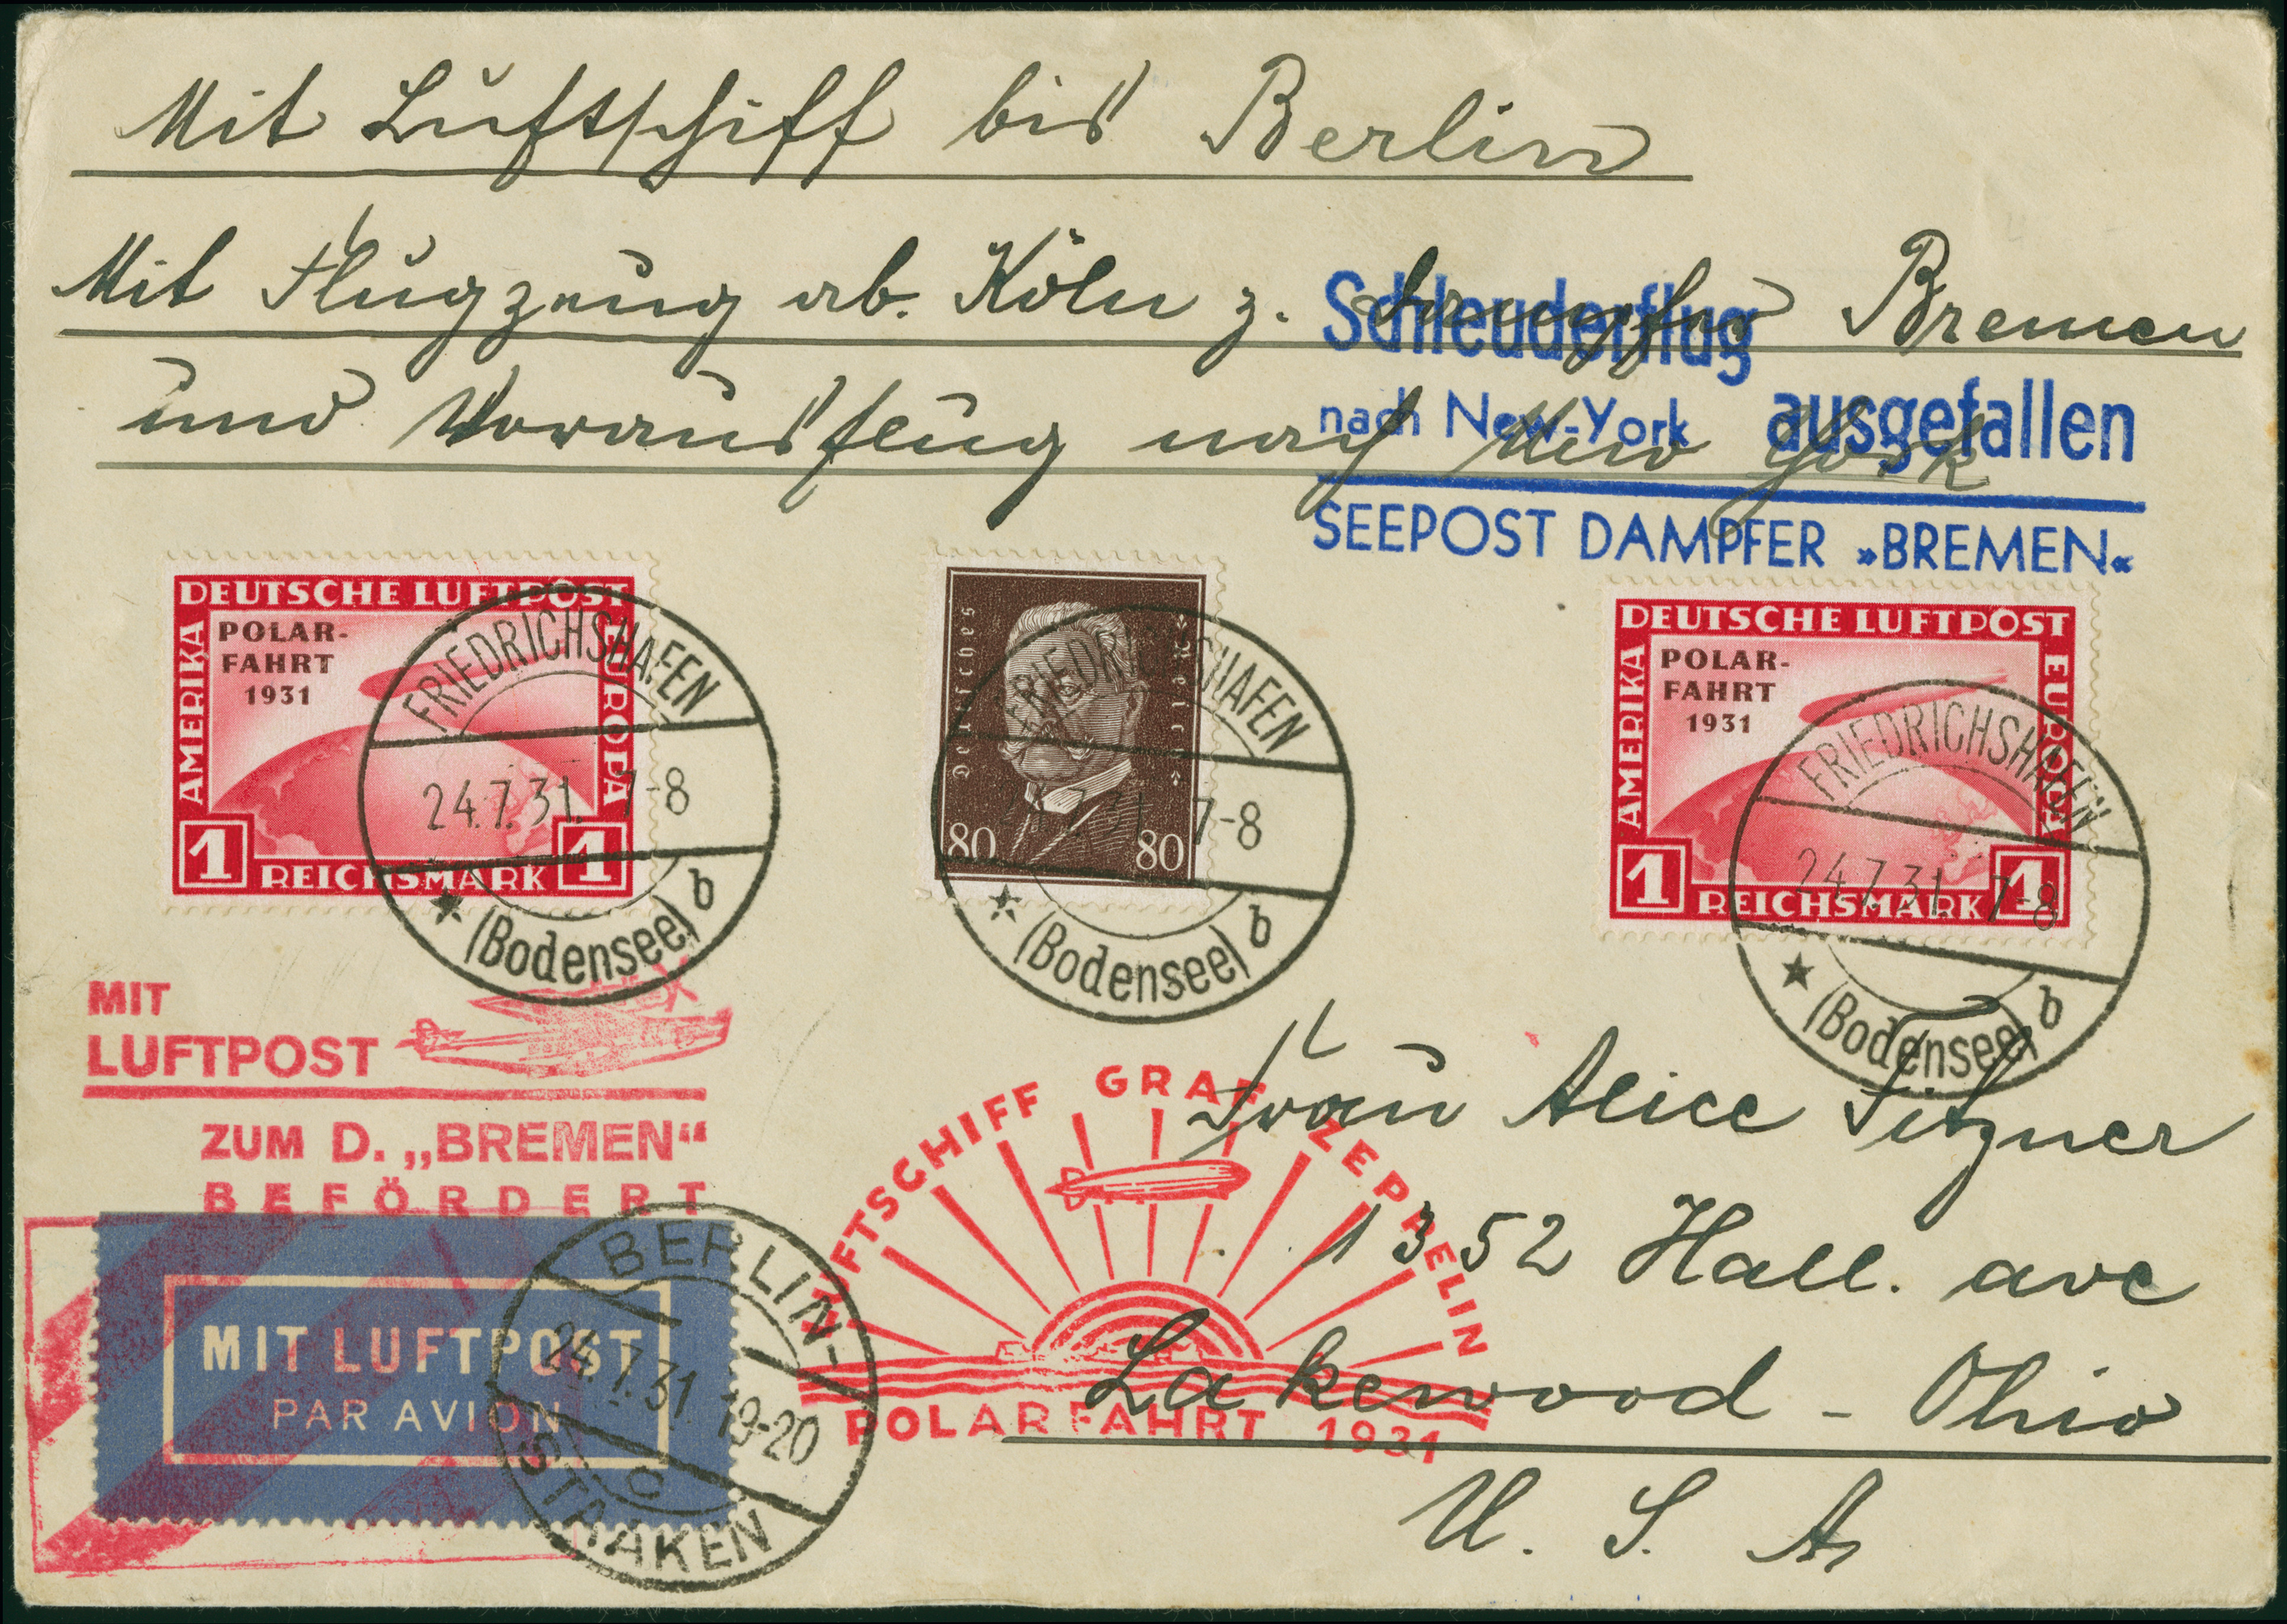 Mit Luftschiff bis Berlin
Mit Flugzeug ab. Köln z. Dampfer Bremen
und Vorausflug nach New York
Schleuderflug
nach New-York ausgefallen
SEEPOST DAMPFER »BREMEN«
DEUTSCHE LUFTPOST
AMERIKA
EUROPA
POLAR-
FAHRT
1931
1 REICHSMARK 1
FRIEDRICHSHAFEN
24.7.31. 7-8
(Bodensee) b
Deutsches Reich
80 80
FRIEDRICHSHAFEN
24.7.31. 7-8
(Bodensee) b
DEUTSCHE LUFTPOST
AMERIKA
EUROPA
POLAR-
FAHRT
1931
1 REICHSMARK 1
FRIEDRICHSHAFEN
24.7.31. 7-8
(Bodensee) b
MIT
LUFTPOST
ZUM D. „BREMEN“
BEFÖRDERT
MIT LUFTPOST
PAR AVION
BERLIN-
24.7.31. 19-20
c
STAAKEN
LUFTSCHIFF GRAF ZEPPELIN
POLARFAHRT 1931
Frau Alice Fitzner
1352 Hall. ave
Lakewood - Ohio
U. S. A